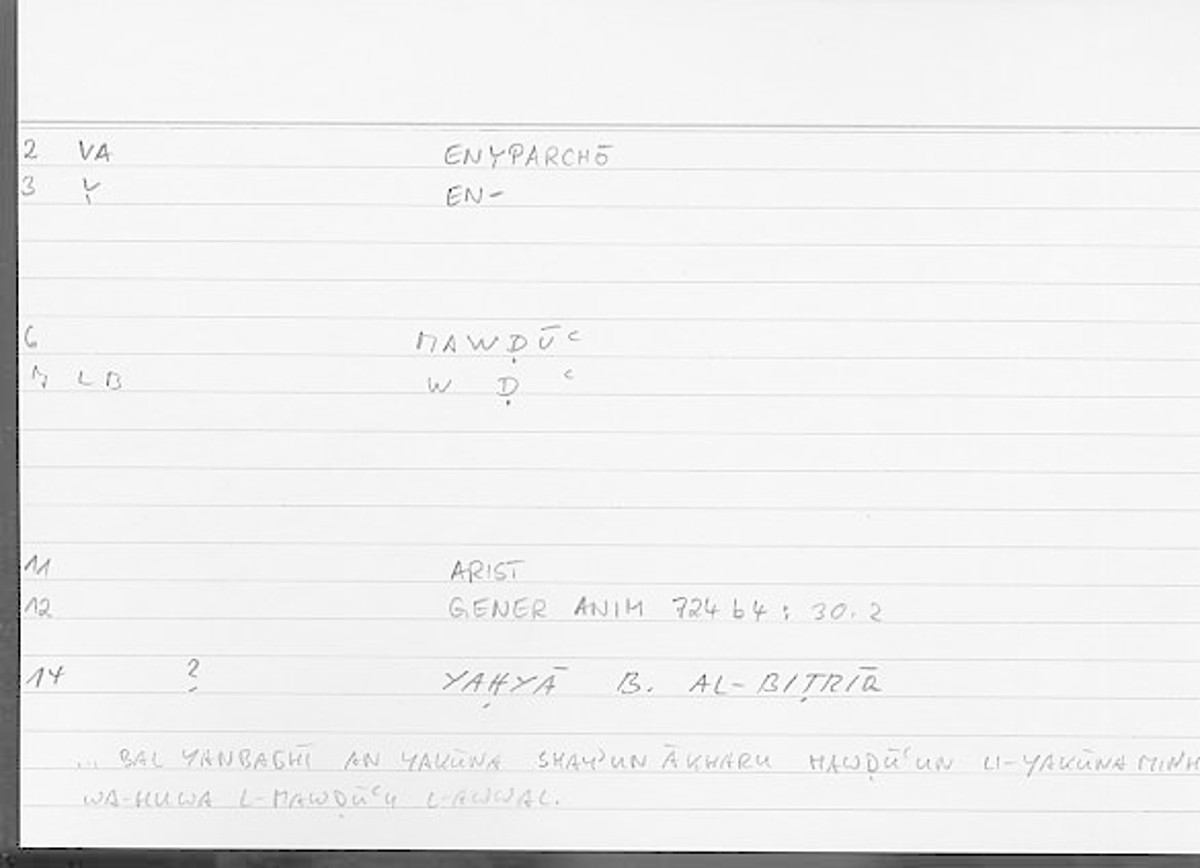 2 VA ENYPARCHŌ
3 Y EN-
6 MAWḌŪʿ
7 LB W Ḍ ʿ
11 ARIST
12 GENER ANIM 724 b4 : 30.2
14 ? YAḤYĀ B. AL-BIṬRĪQ
... BAL YANBAGHĪ AN YAKŪNA SHAYʾUN ĀKHARU MAWḌŪʿUN LI-YAKŪNA MINH
WA-HUWA L-MAWḌŪʿU L-AWWAL.